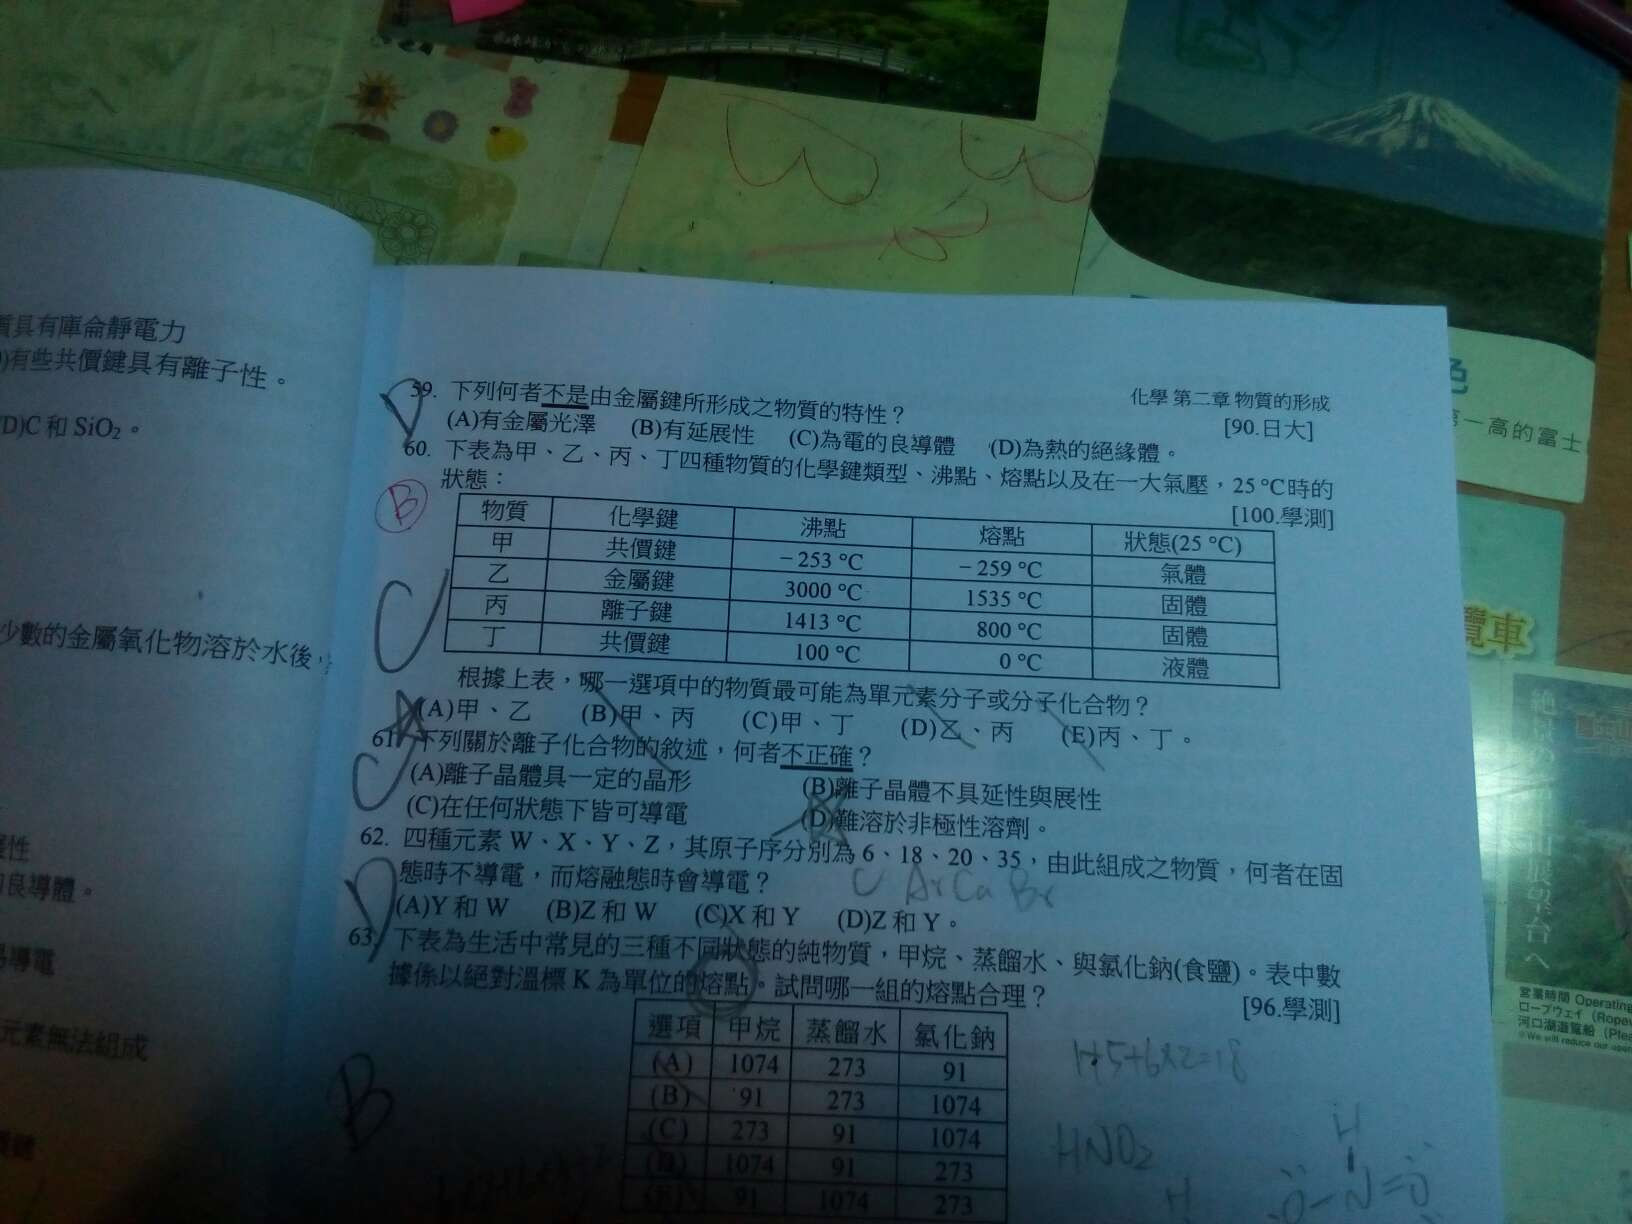 質具有庫侖靜電力
有些共價鍵具有離子性。
(D)C 和 SiO₂。
少數的金屬氧化物溶於水後，
良導體。
導電
元素無法組成
化學 第二章 物質的形成
59. 下列何者不是由金屬鍵所形成之物質的特性？
[90.日大]
(A)有金屬光澤 (B)有延展性 (C)為電的良導體 (D)為熱的絕緣體。
60. 下表為甲、乙、丙、丁四種物質的化學鍵類型、沸點、熔點以及在一大氣壓，25 ℃時的
狀態：
[100.學測]
B
物質 化學鍵 沸點 熔點 狀態(25 ℃)
甲 共價鍵 －253 ℃ －259 ℃ 氣體
乙 金屬鍵 3000 ℃ 1535 ℃ 固體
丙 離子鍵 1413 ℃ 800 ℃ 固體
丁 共價鍵 100 ℃ 0 ℃ 液體
C
根據上表，哪一選項中的物質最可能為單元素分子或分子化合物？
(A)甲、乙 (B)甲、丙 (C)甲、丁 (D)乙、丙 (E)丙、丁。
61. 下列關於離子化合物的敘述，何者不正確？
C
(A)離子晶體具一定的晶形 (B)離子晶體不具延性與展性
(C)在任何狀態下皆可導電 (D)難溶於非極性溶劑。
62. 四種元素 W、X、Y、Z，其原子序分別為 6、18、20、35，由此組成之物質，何者在固
態時不導電，而熔融態時會導電？
C Ar Ca Br
D
(A)Y 和 W (B)Z 和 W (C)X 和 Y (D)Z 和 Y。
63. 下表為生活中常見的三種不同狀態的純物質，甲烷、蒸餾水、與氯化鈉(食鹽)。表中數
據係以絕對溫標 K 為單位的熔點。試問哪一組的熔點合理？
[96.學測]
B
選項 甲烷 蒸餾水 氯化鈉
(A) 1074 273 91
(B) 91 273 1074
(C) 273 91 1074
(D) 1074 91 273
(E) 91 1074 273
1+5+6x2=18
HNO₂
一高的富士
覽車
営業時間 Operating
ロープウェイ (Rope
河口湖遊覧船 (Plea